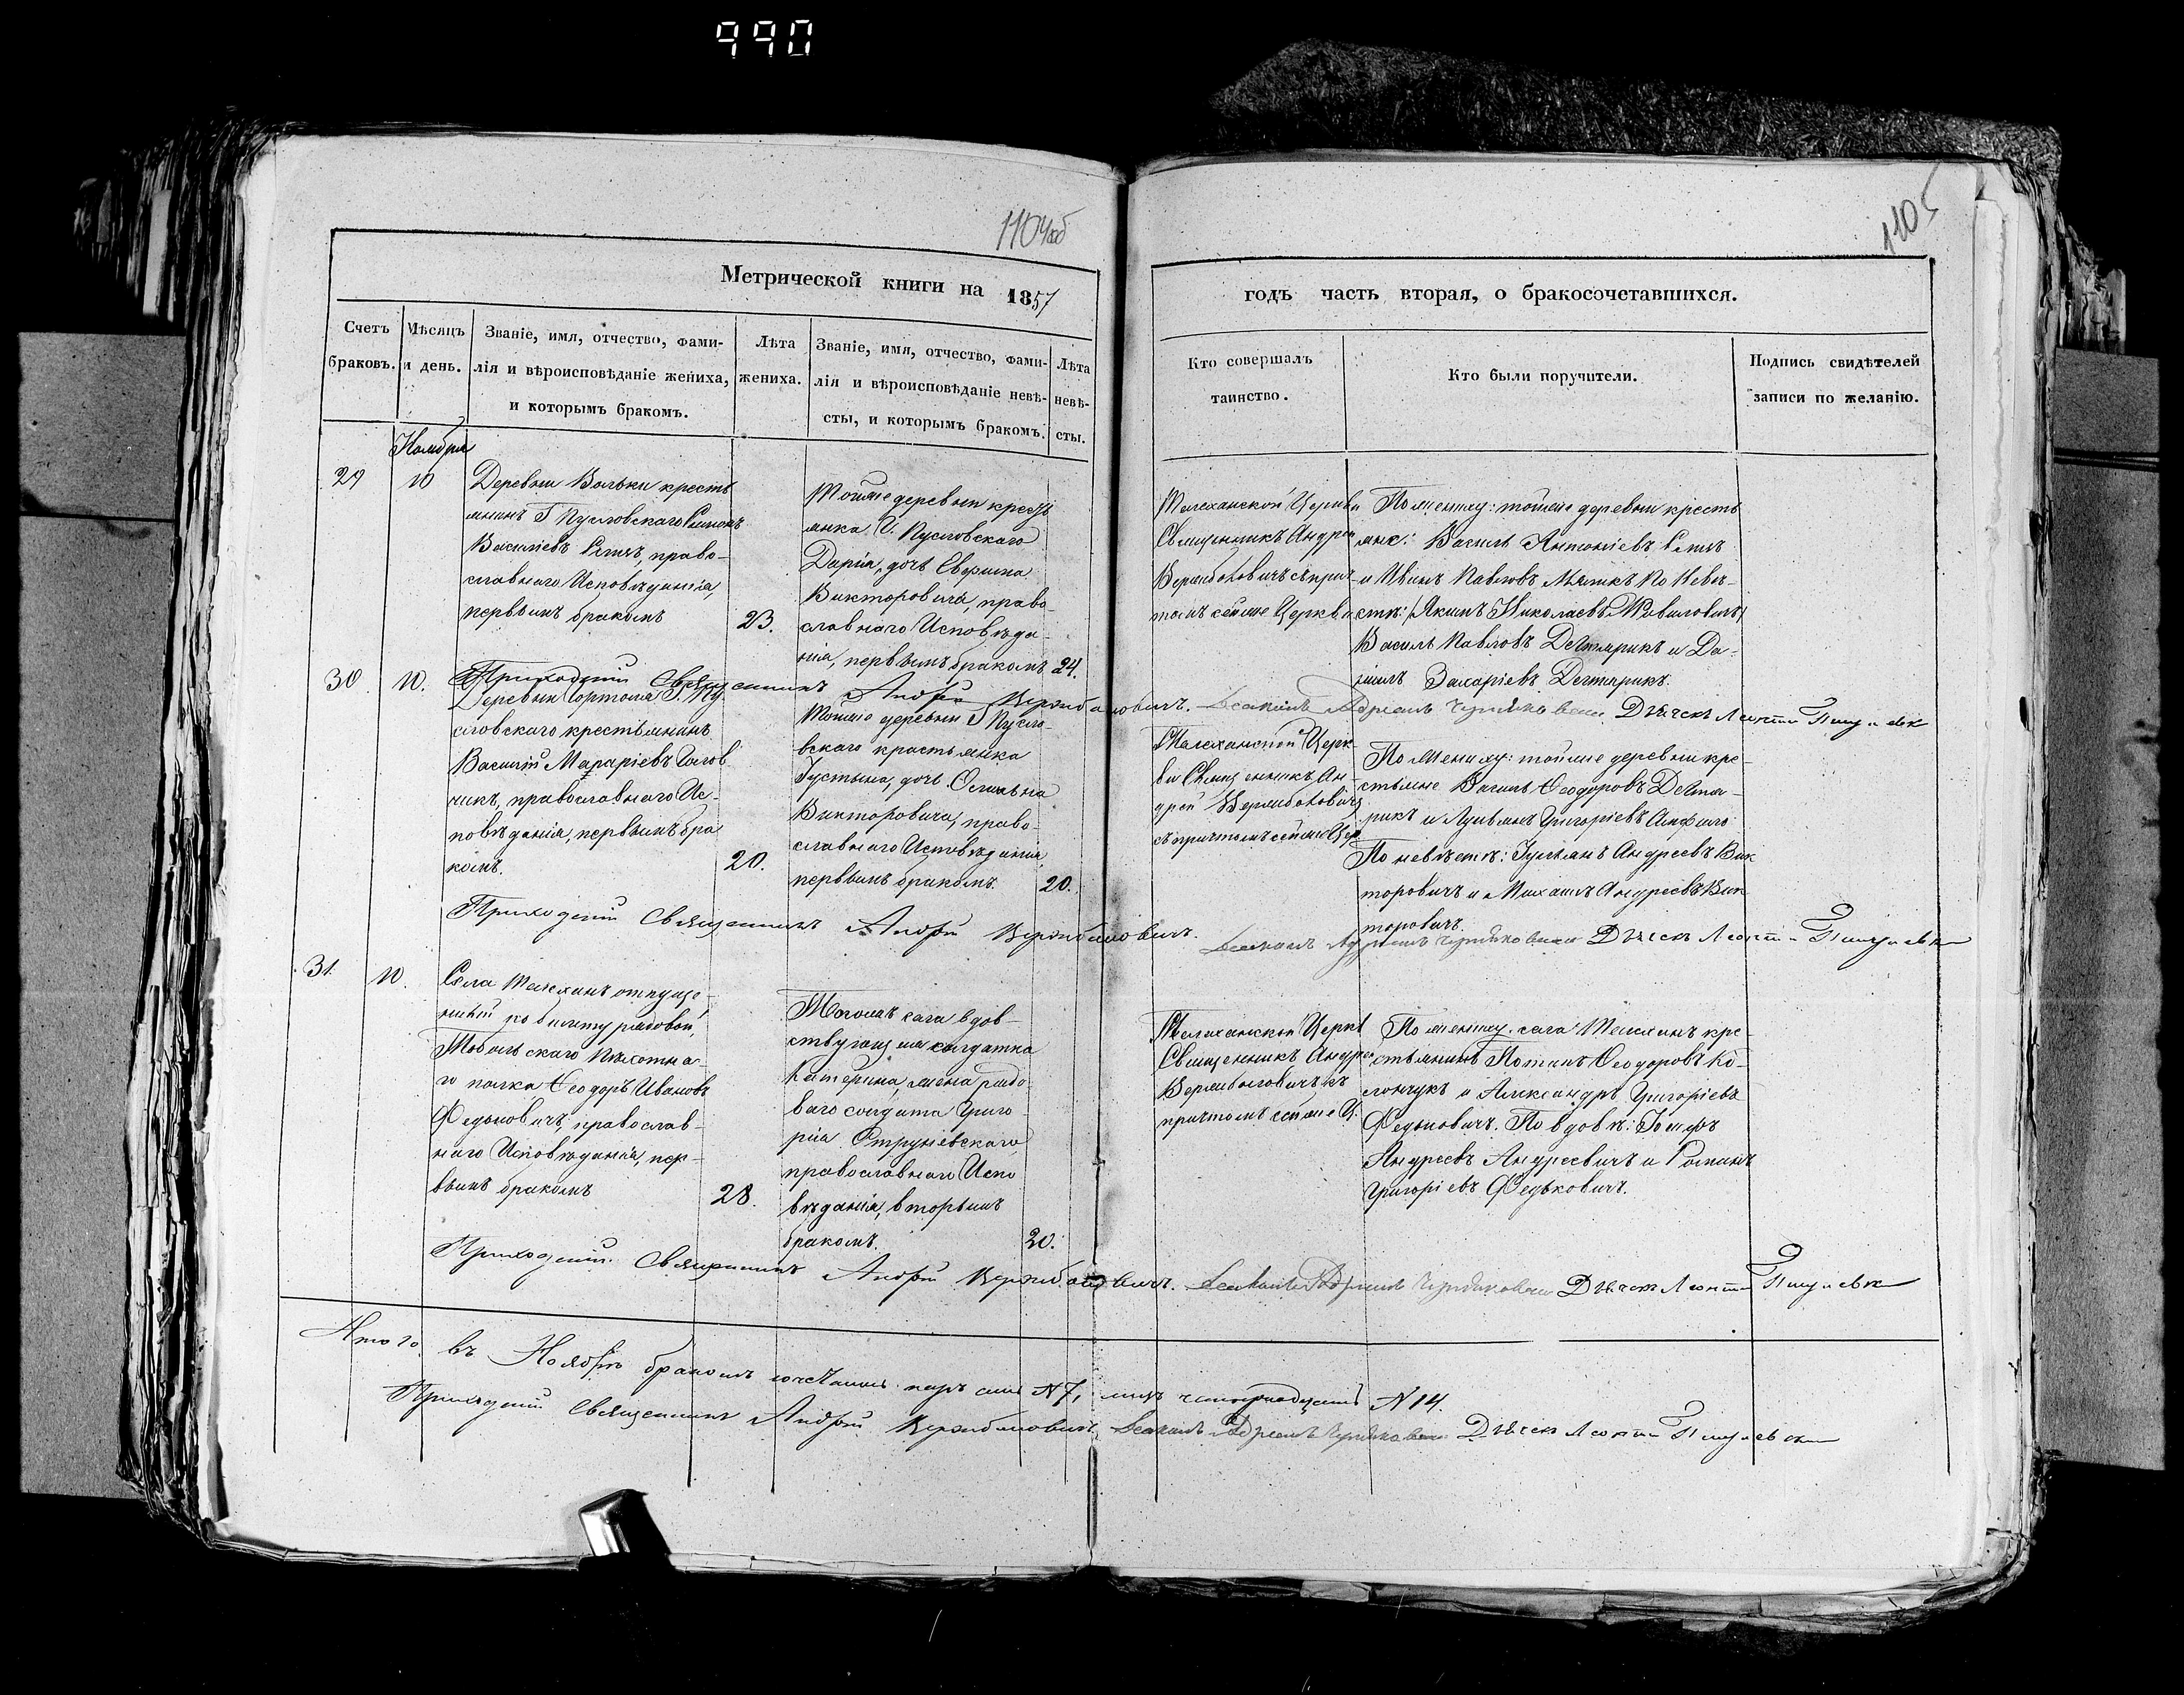 990
1104об
1105
Метрической книги на 1857
годъ часть вторая, о бракосочетавшихся.
Счетъ браковъ.
Мѣсяцъ и день.
Званіе, имя, отчество, фами-
лія и вѣроисповѣданіе жениха,
и которымъ бракомъ.
Лѣта жениха.
Званіе, имя, отчество, фами-
лія и вѣроисповѣданіе невѣ-
сты, и которымъ бракомъ.
Лѣта невѣ-
сты.
Кто совершалъ
таинство.
Кто были поручители.
Подпись свидѣтелей
записи по желанію.
Ноября
29
10
Деревни Вольки кресть
янинъ Г Пусловскаго Симонъ
Василіевъ право-
славнаго Исповѣданія,
первымъ бракомъ
23.
Тойже деревни кресть
янка Г. Пусловскаго
Дарія, дочь Евфима
Викторовича, право-
славнаго Исповѣда-
нія, первымъ бракомъ
24.
Телеханской Церкви
Священникъ Андрей
Вержболовичъ съ прич-
томъ сейже Церкви
По жениху: тойже деревни кресть
яне: Василь Антоніевъ
и Иванъ Павловъ По Невѣ-
стѣ: Якимъ Николаевъ
Василь Павловъ Дегтярикъ и Да-
ніилъ Захаріевъ Дегтярикъ.
Приходскій Священникъ Андрей Вержболовичъ. Адріанъ Дьячекъ Леонтій
30
10.
Деревни Гортоля Г. Пу-
словскаго крестьянинъ
Василій Макаріевъ
православнаго Ис-
повѣданія, первымъ бра
комъ.
20.
Тойже деревни Г Пусло-
вскаго крестьянка
Іустына, дочь
Викторовича, право-
славнаго Исповѣданія
первымъ бракомъ.
20.
Телеханской Церк
ви Священникъ Ан-
дрей Вержболовичъ
съ причтомъ сейже Цер.
По Жениху: тойже деревни кре-
стьяне Василь Ѳеодоровъ Дегтя-
рикъ и Лукьянъ Григоріевъ
По невѣстѣ: Іульянъ Андреевъ Вик
торовичъ и Михаилъ Андреевъ Вик
торовичъ.
Приходскій Священникъ Андрей Вержболовичъ. Адріанъ Дьячекъ Леонтій
31.
10.
Села Телеханъ отпуще-
нный по билету рядовой,
Тобольскаго Пѣхотна-
го полка Ѳеодоръ Ивановъ
Федьковичъ, православ-
наго Исповѣданія, пер-
вымъ бракомъ
28.
Тогожъ села вдов-
ствующая солдатка
Катерина, жена рядо-
ваго солдата Григо-
рія Струніевскаго,
православнаго Испо
вѣданія, вторымъ
бракомъ.
20.
Телеханской Церкви
Священникъ Андрей
Вержболовичъ съ
причтомъ сейже Ц.
По жениху: села Телеханъ кре-
стьянинъ Потапъ Ѳеодоровъ Ко-
лончукъ и Александръ Григоріевъ
Федьковичъ. По вдовѣ: Іосифъ
Андреевъ Андреевичъ и Романъ
Григоріевъ Федьковичъ.
Приходскій Священникъ Андрей Вержболовичъ. Адріанъ Дьячекъ Леонтій
Итого въ Ноябрѣ бракомъ сочетанныхъ паръ семь № 7, лицъ четырнадцать № 14.
Приходскій Священникъ Андрей Вержболовичъ. Адріанъ Дьячекъ Леонтій